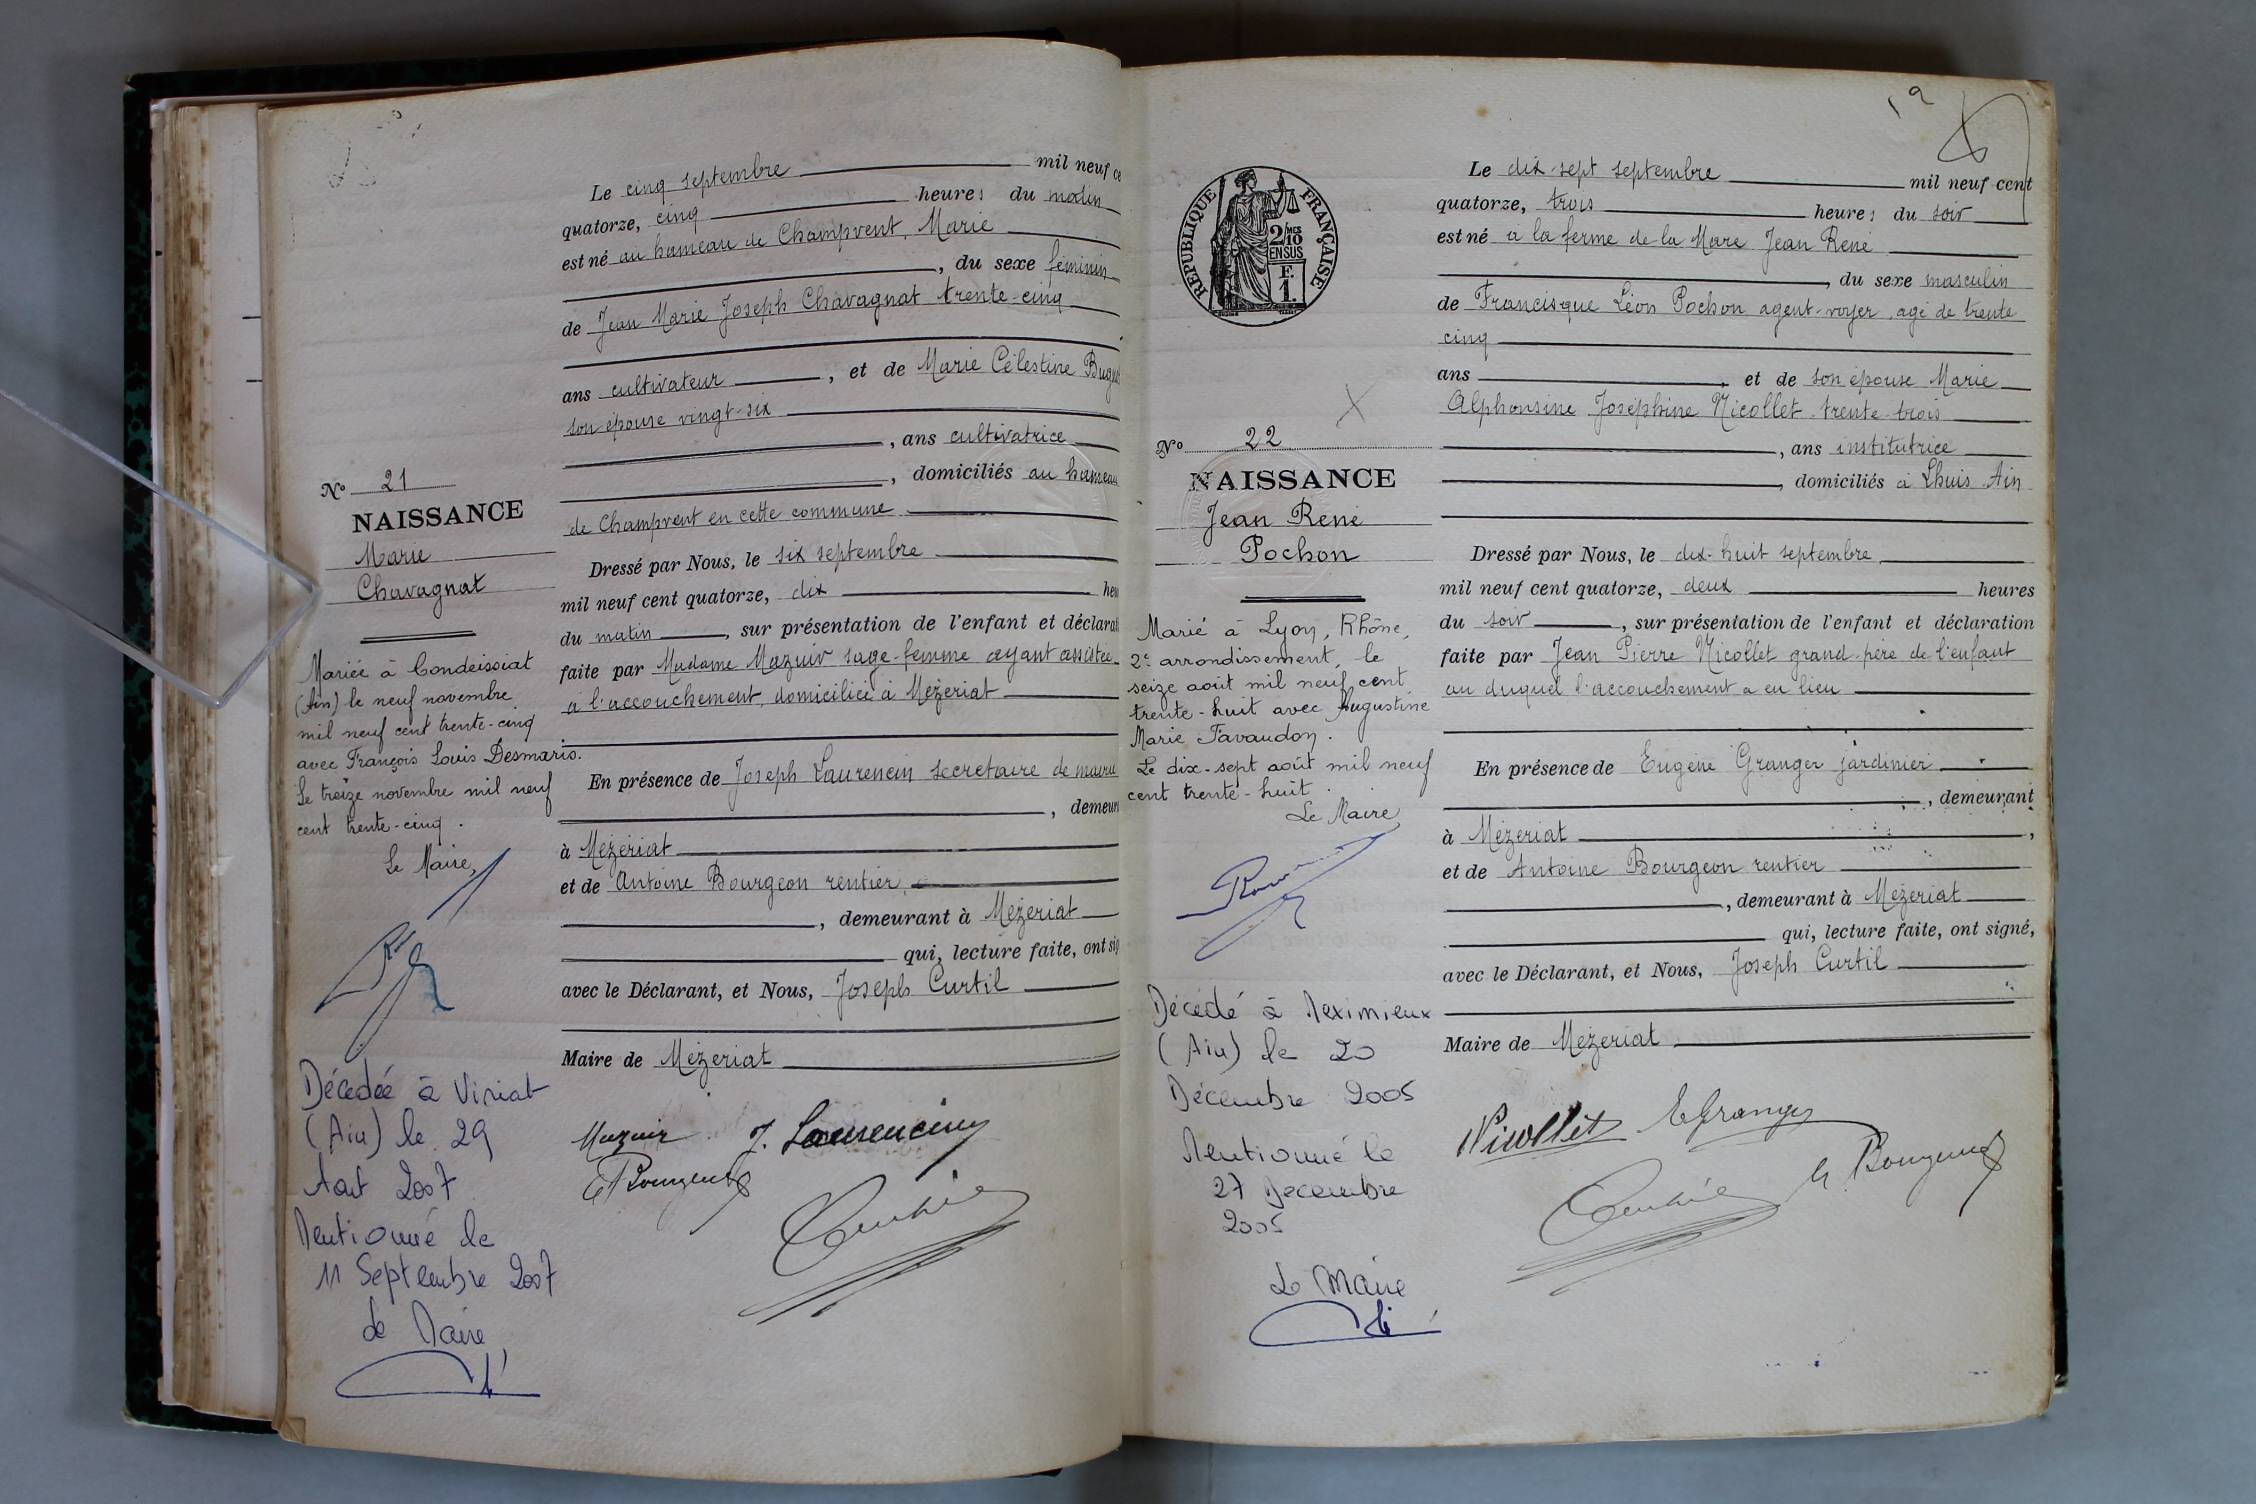 Le cinq septembre mil neuf ce
quatorze, cinq heures du matin
est né au hameau de Champvent, Marie
, du sexe féminin
de Jean Marie Joseph Chavagnat trente-cinq
ans cultivateur , et de Marie Célestine
son épouse vingt-six
, ans cultivatrice
, domiciliés au hameau
de Champvent en cette commune
Dressé par Nous, le six septembre
mil neuf cent quatorze, dix heu
du matin , sur présentation de l'enfant et déclarat
faite par Madame Mazuir sage-femme ayant assistée
à l'accouchement, domiciliée à Mézeriat
En présence de Joseph Laurencin secrétaire de mairie
, demeur
à Mézériat
et de Antoine Bourgeon rentier,
, demeurant à Mézeriat
qui, lecture faite, ont sig
avec le Déclarant, et Nous, Joseph Curtil
Maire de Mézeriat
Mazuir J. Laurencin
Bourgeon
No 21
NAISSANCE
Marie
Chavagnat
Mariée à Condeissiat
(Ain) le neuf novembre
mil neuf cent trente-cinq
avec François Louis Desmaris.
Le treize novembre mil neuf
cent trente-cinq.
Le Maire,
Décédée à Viriat
(Ain) le 29
Aout 2007
Mentionné le
11 Septembre 2007
Le Maire
19
REPUBLIQUE FRANÇAISE
2/10 MES
EN SUS
F.
1.
Le dix-sept septembre mil neuf cent
quatorze, trois heures du soir
est né à la ferme de la Mare Jean René
, du sexe masculin
de Francisque Léon Pochon agent-voyer, agé de trente
cinq
ans , et de son épouse Marie
Alphonsine Joséphine Nicollet trente-trois
, ans institutrice
, domiciliés à Lhuis Ain
Dressé par Nous, le dix-huit septembre
mil neuf cent quatorze, deux heures
du soir , sur présentation de l'enfant et déclaration
faite par Jean Pierre Nicollet grand-père de l'enfant
au duquel l'accouchement a eu lieu
En présence de Eugène Granger jardinier
, demeurant
à Mézeriat ,
et de Antoine Bourgeon rentier
, demeurant à Mézeriat
qui, lecture faite, ont signé,
avec le Déclarant, et Nous, Joseph Curtil
Maire de Mézeriat
Nicollet E Granger
Bourgeon
No 22
NAISSANCE
Jean René
Pochon
Marié à Lyon, Rhône,
2e arrondissement, le
seize août mil neuf cent
trente-huit avec Augustine
Marie Favaudon.
Le dix-sept août mil neuf
cent trente-huit.
Le Maire,
Décédé à Meximieux
(Ain) le 20
Décembre 2005
Mentionné le
27 Decembre
2005
Le Maire